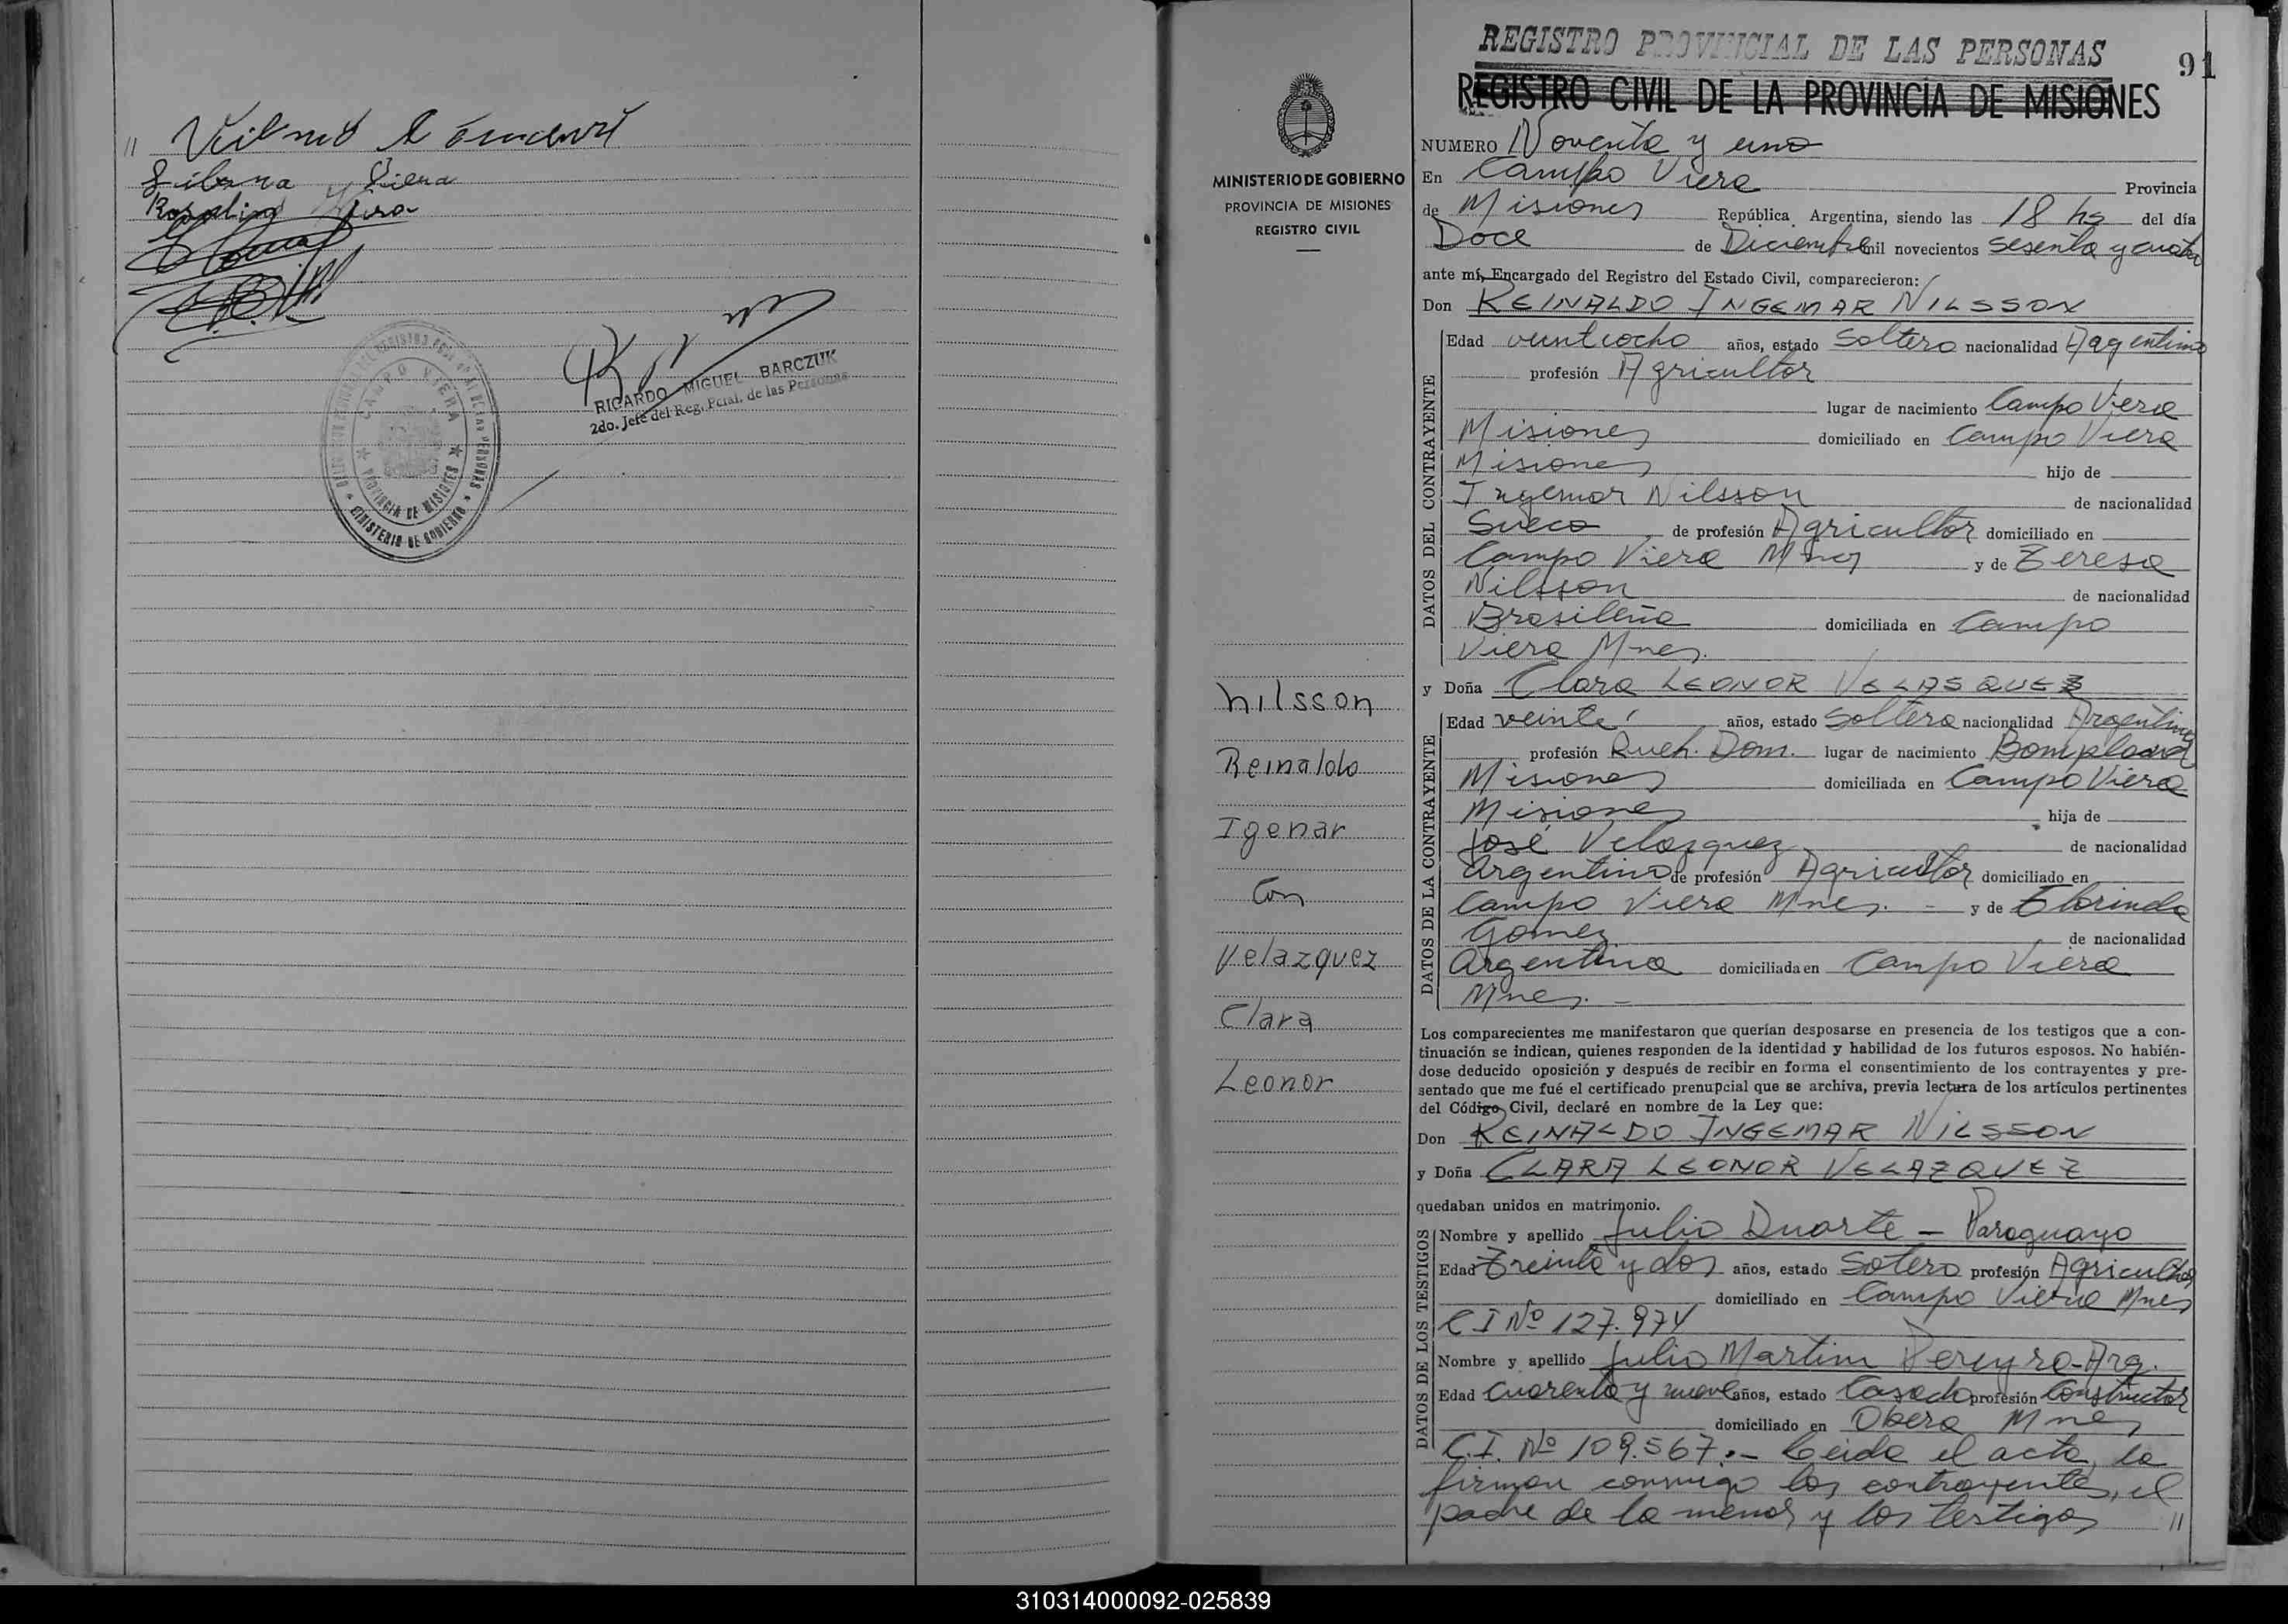 Libera Viera
Rosalino
RICARDO MIGUEL BARCZUK
2do. Jefe del Reg. Pcial. de las Personas
CAMPO VIERA
PROVINCIA DE MISIONES
MINISTERIO DE GOBIERNO
MINISTERIO DE GOBIERNO
PROVINCIA DE MISIONES
REGISTRO CIVIL
Nilsson
Reinaldo
Igenar
Con
Velazquez
Clara
Leonor
REGISTRO PROVINCIAL DE LAS PERSONAS
91
REGISTRO CIVIL DE LA PROVINCIA DE MISIONES
NUMERO Noventa y uno
En Campo Viera Provincia
de Misiones República Argentina, siendo las 18 hs del día
Doce de Diciembre mil novecientos sesenta y cuatro
ante mí, Encargado del Registro del Estado Civil, comparecieron:
Don REINALDO INGEMAR NILSSON
DATOS DEL CONTRAYENTE
Edad veintiocho años, estado Soltero nacionalidad Argentino
profesión Agricultor
lugar de nacimiento Campo Viera
Misiones domiciliado en Campo Viera
Misiones hijo de
Ingemar Nilsson de nacionalidad
Sueco de profesión Agricultor domiciliado en
Campo Viera Mnes y de Teresa
Nilsson de nacionalidad
Brasileña domiciliada en Campo
Viera Mnes.
y Doña Clara LEONOR VELASQUEZ
DATOS DE LA CONTRAYENTE
Edad veinte años, estado Soltera nacionalidad Argentina
profesión Queh. Dom. lugar de nacimiento Bompland
Misiones domiciliada en Campo Viera
Misiones hija de
José Velazquez de nacionalidad
Argentino de profesión Agricultor domiciliado en
Campo Viera Mnes. - y de Florinda
Gomez de nacionalidad
Argentina domiciliada en Campo Viera
Mnes. -
Los comparecientes me manifestaron que querían desposarse en presencia de los testigos que a con-
tinuación se indican, quienes responden de la identidad y habilidad de los futuros esposos. No habién-
dose deducido oposición y después de recibir en forma el consentimiento de los contrayentes y pre-
sentado que me fué el certificado prenupcial que se archiva, previa lectura de los artículos pertinentes
del Código Civil, declaré en nombre de la Ley que:
Don REINALDO INGEMAR NILSSON
y Doña CLARA LEONOR VELAZQUEZ
quedaban unidos en matrimonio.
DATOS DE LOS TESTIGOS
Nombre y apellido Julio Duarte - Paraguayo
Edad Treinta y dos años, estado Sotero profesión Agricultor
domiciliado en Campo Viera Mnes
C I Nº 127.974
Nombre y apellido Julio Martin Pereyro - Arg.
Edad Cuarenta y nueve años, estado Casado profesión Constructor
domiciliado en Obera Mnes
C.I. Nº 109.567.- Leida el acta, la
firman conmigo los contrayentes, el
padre de la menor y los testigos //
310314000092-025839